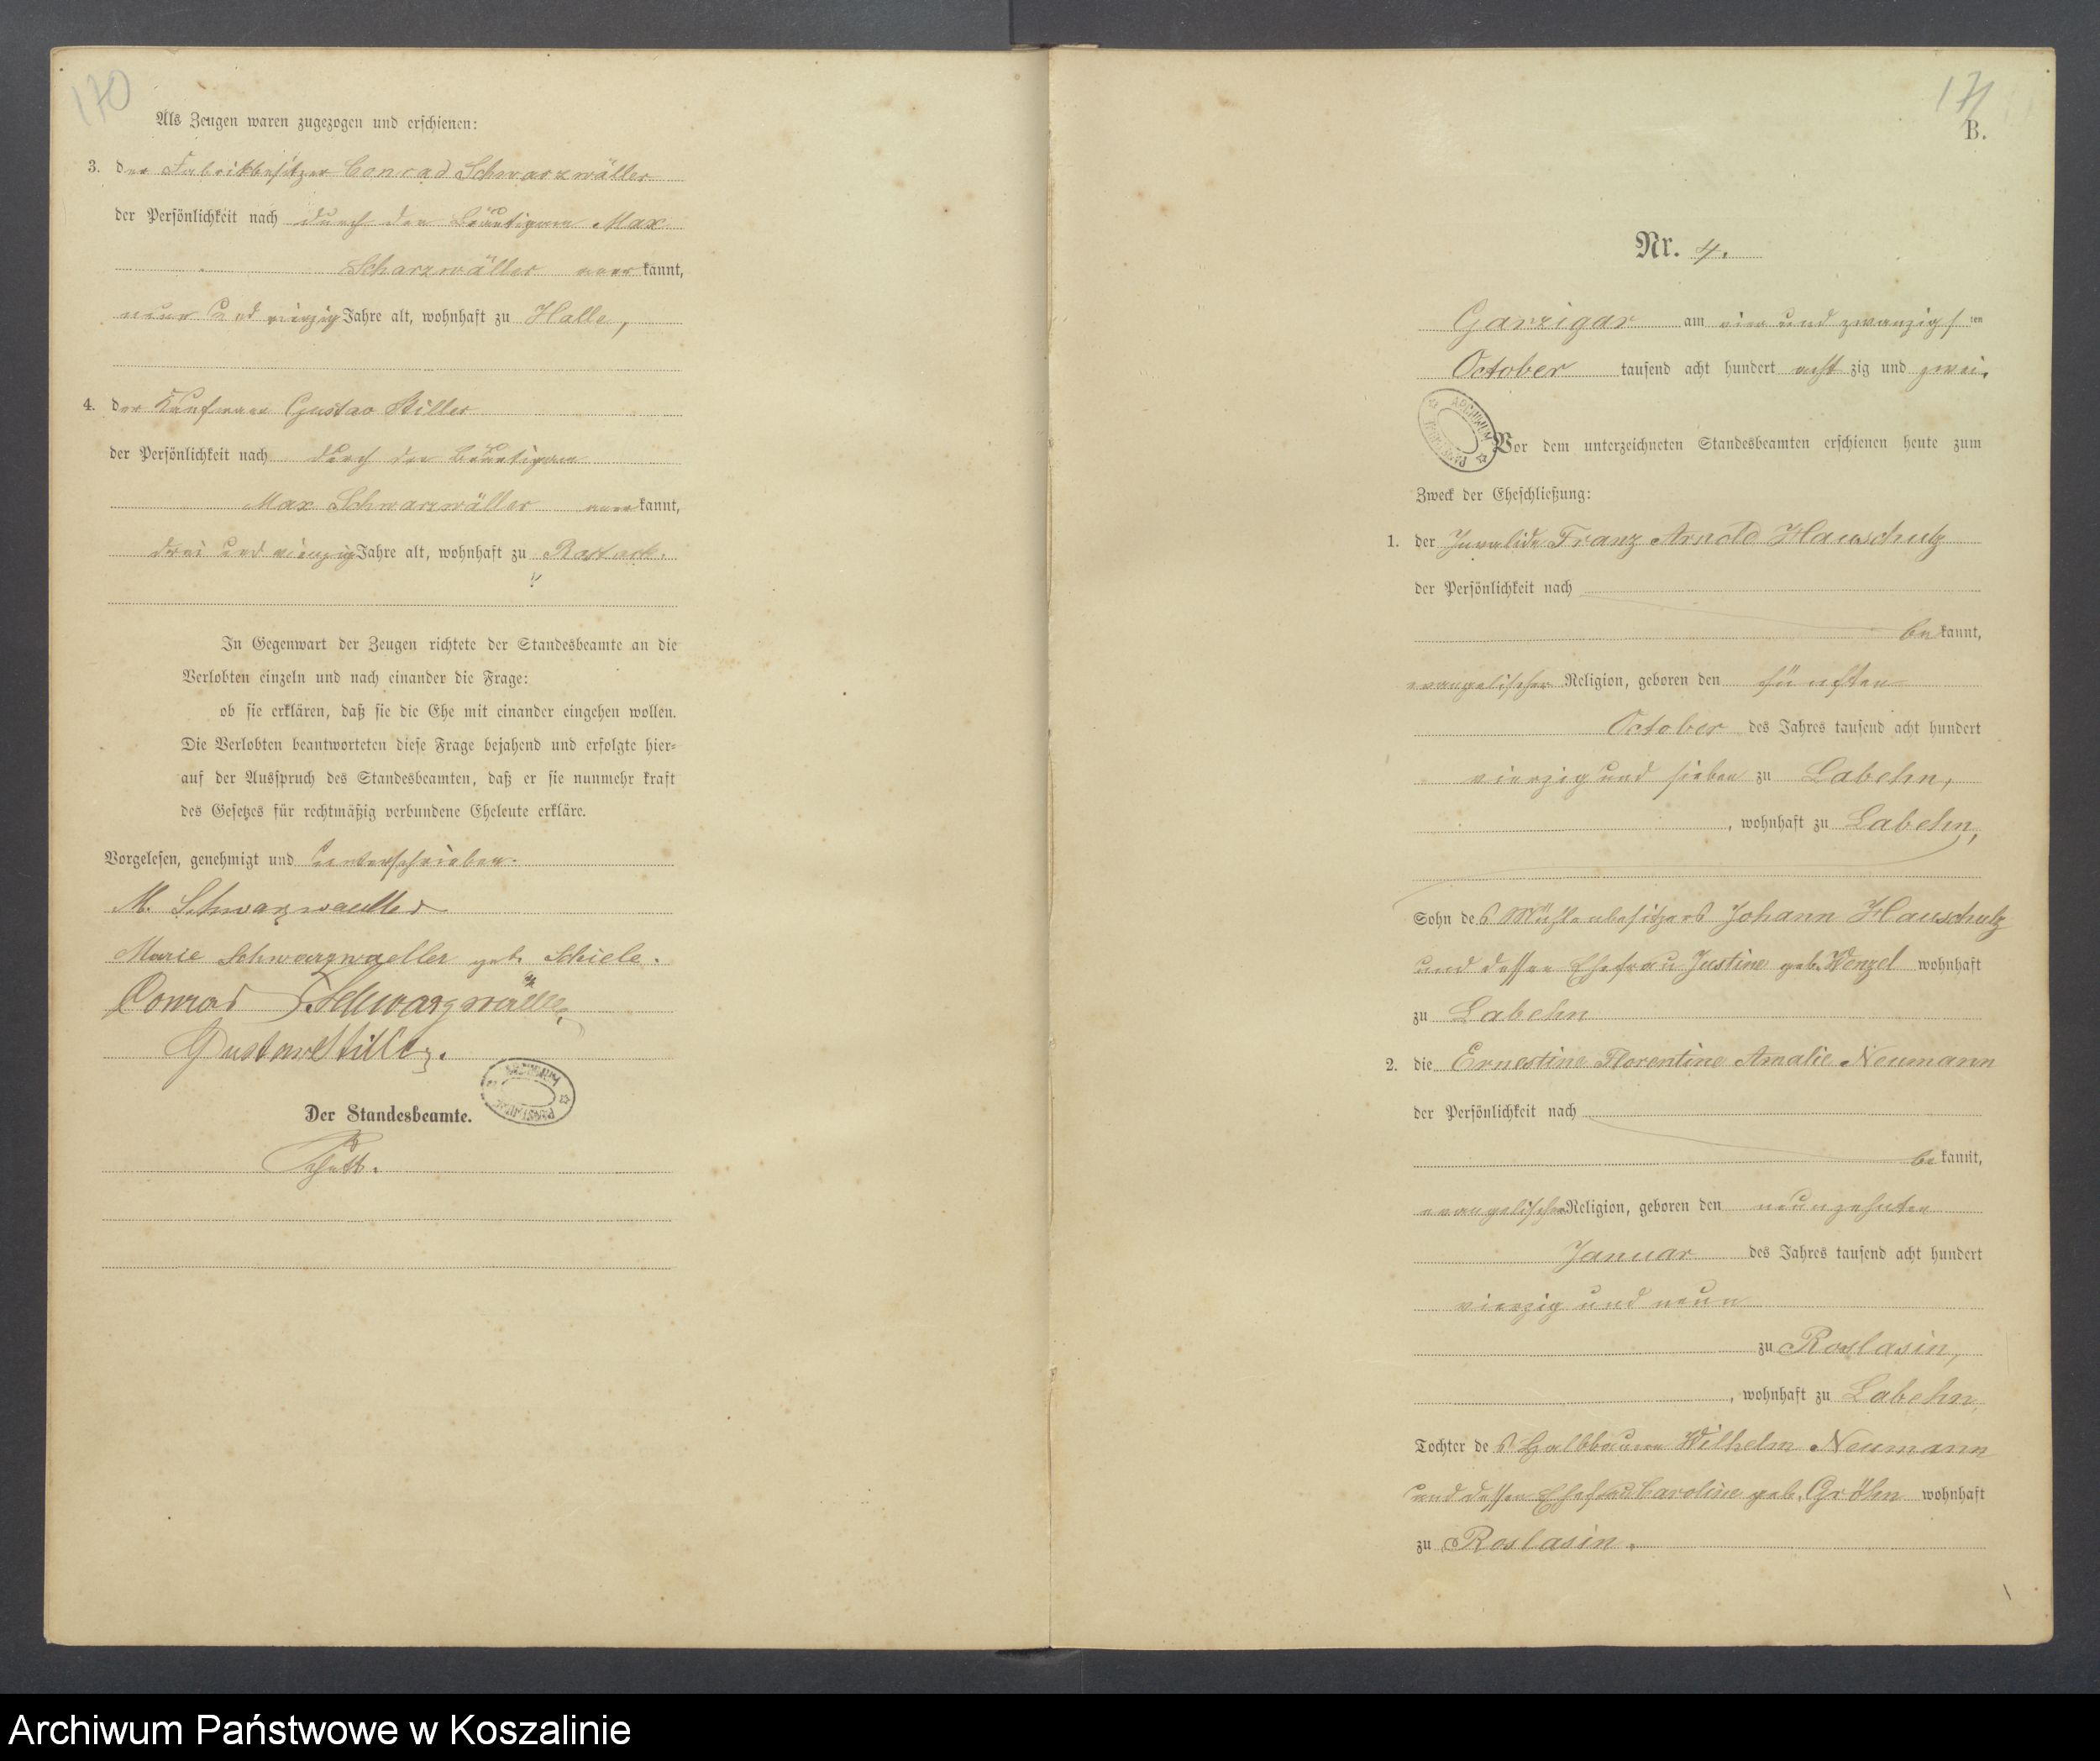 170
Als Zeugen waren zugezogen und erschienen:
3. der Fabrikbesitzer Conrad Schwarzwäller
der Persönlichkeit nach durch den Bräutigam Max
Scharzwäller anerkannt,
neun und vierzig Jahre alt, wohnhaft zu Halle,
4. der Kaufmann Gustav Stiller
der Persönlichkeit nach durch den Bräutigam
Max Schwarzwäller anerkannt,
drei und vierzig Jahre alt, wohnhaft zu Rostock.
In Gegenwart der Zeugen richtete der Standesbeamte an die
Verlobten einzeln und nach einander die Frage:
ob sie erklären, daß sie die Ehe mit einander eingehen wollen.
Die Verlobten beantworteten diese Frage bejahend und erfolgte hier-
auf der Ausspruch des Standesbeamten, daß er sie nunmehr kraft
des Gesetzes für rechtmäßig verbundene Eheleute erkläre.
Vorgelesen, genehmigt und unterschrieben.
M. Schwarzwaeller
Marie Schwarzwaeller geb. Schiele.
Conrad Schwarzwäller
Gustav Stiller.
ARCHIWUM PAŃSTWOWE
Der Standesbeamte.
171
B.
Nr. 4.
Garzigar am vier und zwanzigsten
October tausend acht hundert achtzig und zwei.
ARCHIWUM PAŃSTWOWE
Vor dem unterzeichneten Standesbeamten erschienen heute zum
Zweck der Eheschließung:
1. der Invalide Franz Arnold Hauschulz
der Persönlichkeit nach
bekannt,
evangelischer Religion, geboren den fünften
October des Jahres tausend acht hundert
vierzig und sieben zu Labehn,
, wohnhaft zu Labehn,
Sohn des Mühlenbesitzers Johann Hauschulz
und dessen Ehefrau Justine geb. Wenzel wohnhaft
zu Labehn
2. die Ernestine Florentine Amalie Neumann
der Persönlichkeit nach
bekannt,
evangelischer Religion, geboren den neunzehnten
Januar des Jahres tausend acht hundert
vierzig und neun
zu Roslasin,
, wohnhaft zu Labehn,
Tochter des Halbbauern Wilhelm Neumann
und dessen Ehefrau Caroline geb. Gröhn wohnhaft
zu Roslasin.
Archiwum Państwowe w Koszalinie